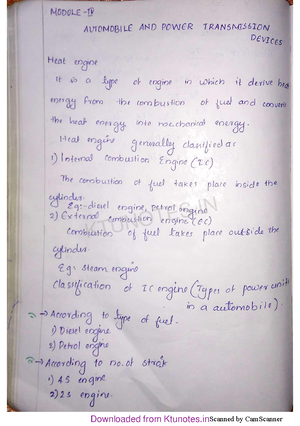 MODULE-IV
AUTOMOBILE AND POWER TRANSMISSION
DEVICES
Heat engine
It is a type of engine in which it derive heat
energy from the combustion of fuel and converts
the heat energy into mechanical energy.
Heat engine generally classified as
1) Internal Combustion Engine (IC)
The combustion of fuel takes place inside the
cylinder.
Eg:- diesel engine, petrol engine
2) External Combustion engine (EC)
Combustion of fuel takes place outside the
cylinder
Eg:- Steam engine
Classification of IC engine (Types of power units
in a automobile).
→ According to type of fuel.
1) Diesel engine
2) Petrol engine
→ According to no. of stroke
1) 4S engine
2) 2S engine.
KTUNOTES.IN
Downloaded from Ktunotes.in Scanned by CamScanner